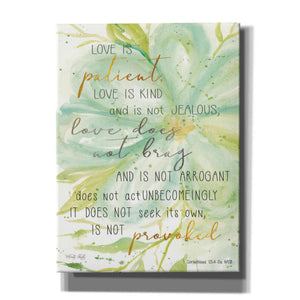 LOVE IS
patient,
LOVE IS KIND
and is not JEALOUS;
love does
not brag
AND IS NOT ARROGANT
does not act UNBECOMEINGLY
IT DOES NOT seek its own,
IS NOT provoked
Corinthians 13:4-5a NASB